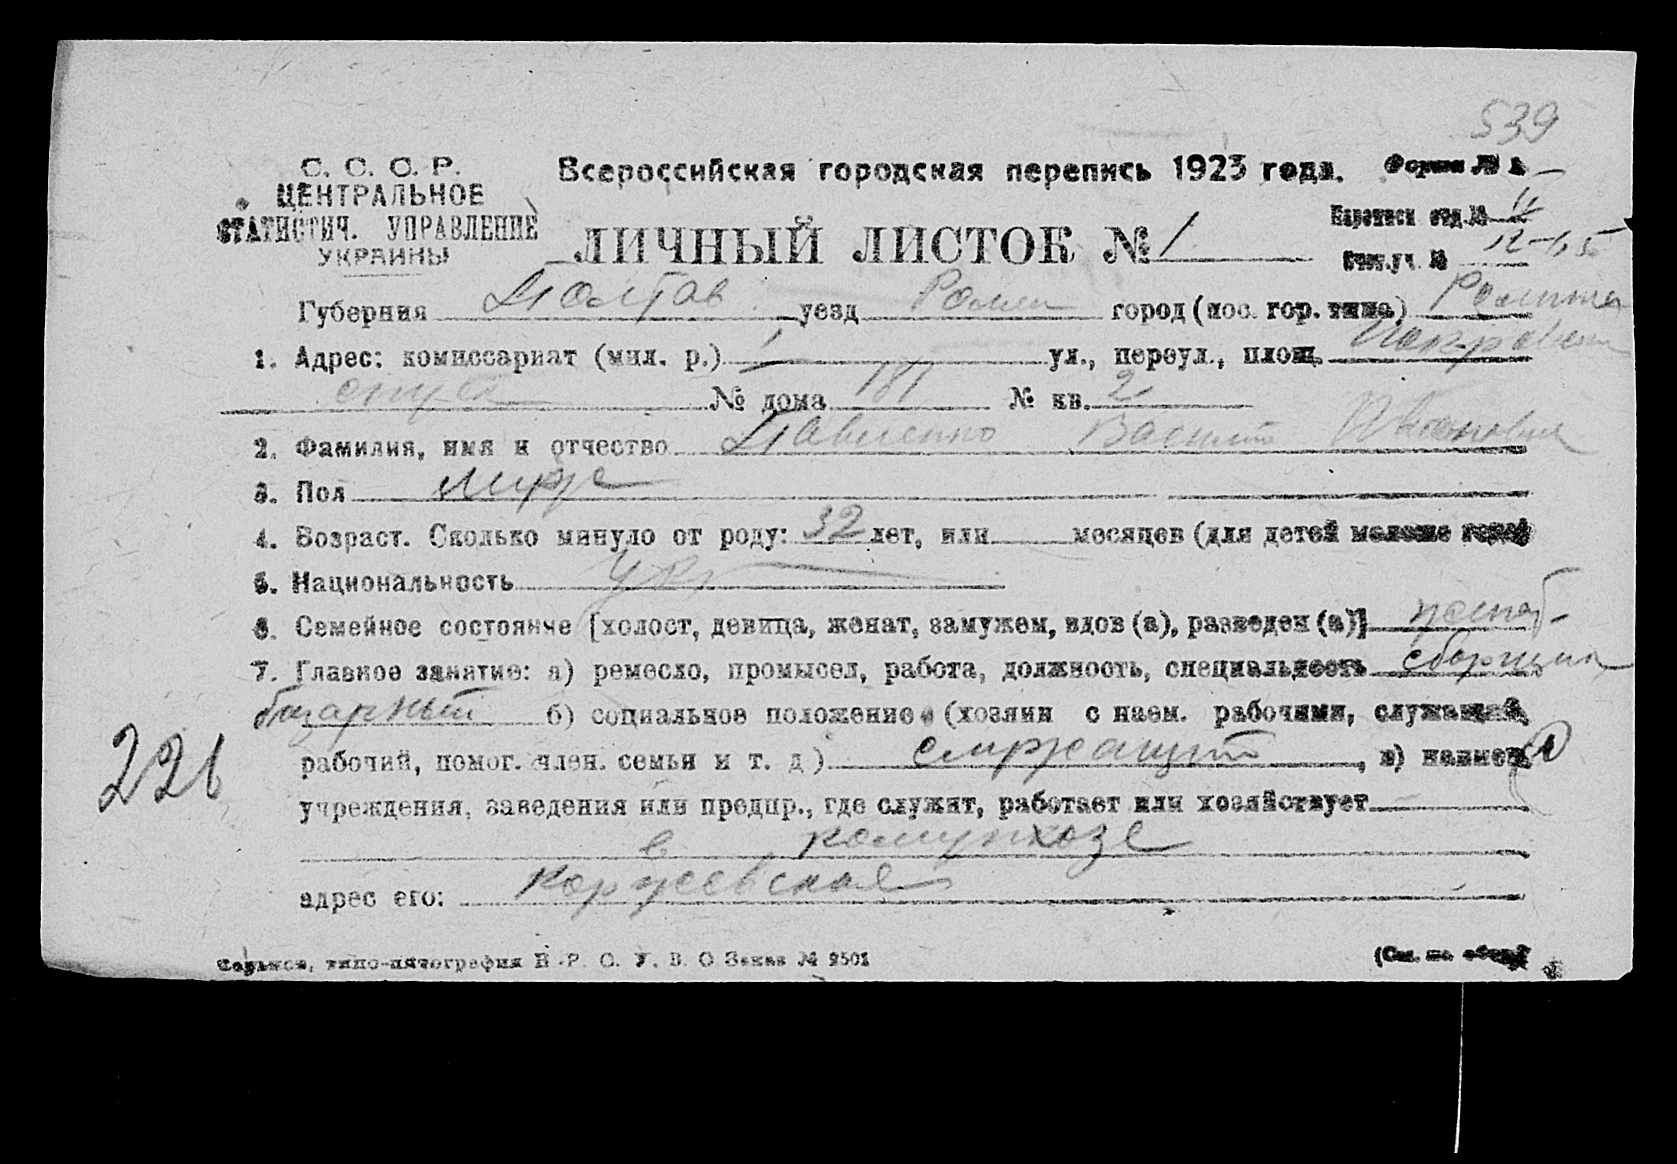 539
С. С. С. Р.
ЦЕНТРАЛЬНОЕ
СТАТИСТИЧ. УПРАВЛЕНИЕ
УКРАИНЫ
Всероссийская городская перепись 1923 года.
Форма № 1
ЛИЧНЫЙ ЛИСТОК № 1
Переписн отд. № II
Счет. уч. № 12-
Губерния Полтав уезд Ромен город (пос. гор. типа) Ромны
1. Адрес: комиссариат (мил. р.) 1 ул., переул., площ.
№ дома 181 № кв. 2
2. Фамилия, имя и отчество Павленко Василий Иванович
3. Пол Мужс
4. Возраст. Сколько минуло от роду: 32 лет, или месяцев (для детей моложе года)
5. Национальность Укр
6. Семейное состояние [холост, девица, женат, замужем, вдов (а), разведен (а)]
7. Главное занятие: а) ремесло, промысел, работа, должность, специальность сборщик
базарный б) социальное положение (хозяин с наем. рабочими, служащий,
рабочий, помог. член. семьи и т. д) служащий, в) наимен.
226
учреждения, заведения или предпр., где служит, работает или хозяйствует
в комунхозе
адрес его: Коржевская
Харьков, типо-литография В. Р. С. У. В. О Заказ № 2501
(См. на обор.)